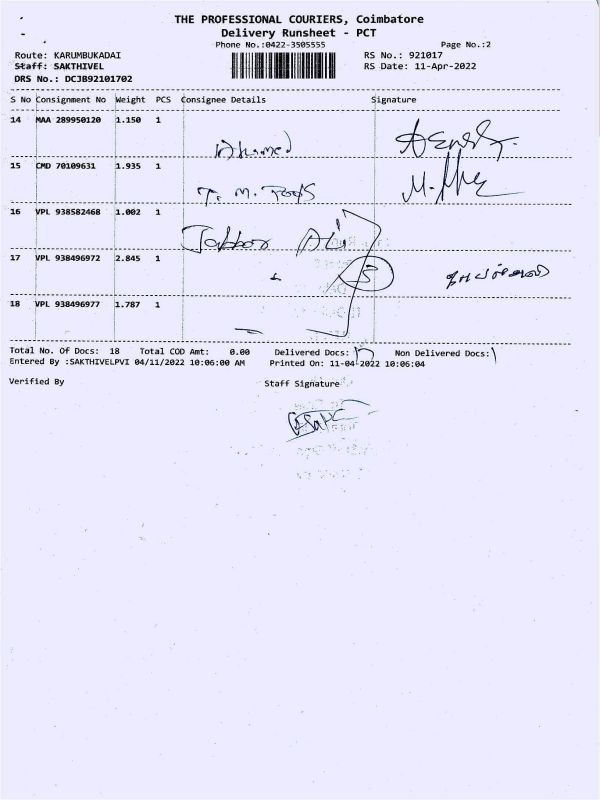 THE PROFESSIONAL COURIERS, Coimbatore
Delivery Runsheet - PCT
Phone No.:0422-3505555 Page No.:2
Route: KARUMBUKADAI RS No.: 921017
Staff: SAKTHIVEL RS Date: 11-Apr-2022
DRS No.: DCJB92101702
S No Consignment No Weight PCS Consignee Details Signature
14 MAA 289950120 1.150 1
Ahamed
15 CMD 70109631 1.935 1
T. M.
16 VPL 938582468 1.002 1
Jabbar Ali
17 VPL 938496972 2.845 1
3
18 VPL 938496977 1.787 1
Total No. Of Docs: 18 Total COD Amt: 0.00 Delivered Docs: 17 Non Delivered Docs: 1
Entered By :SAKTHIVELPVI 04/11/2022 10:06:00 AM Printed On: 11-04-2022 10:06:04
Verified By Staff Signature